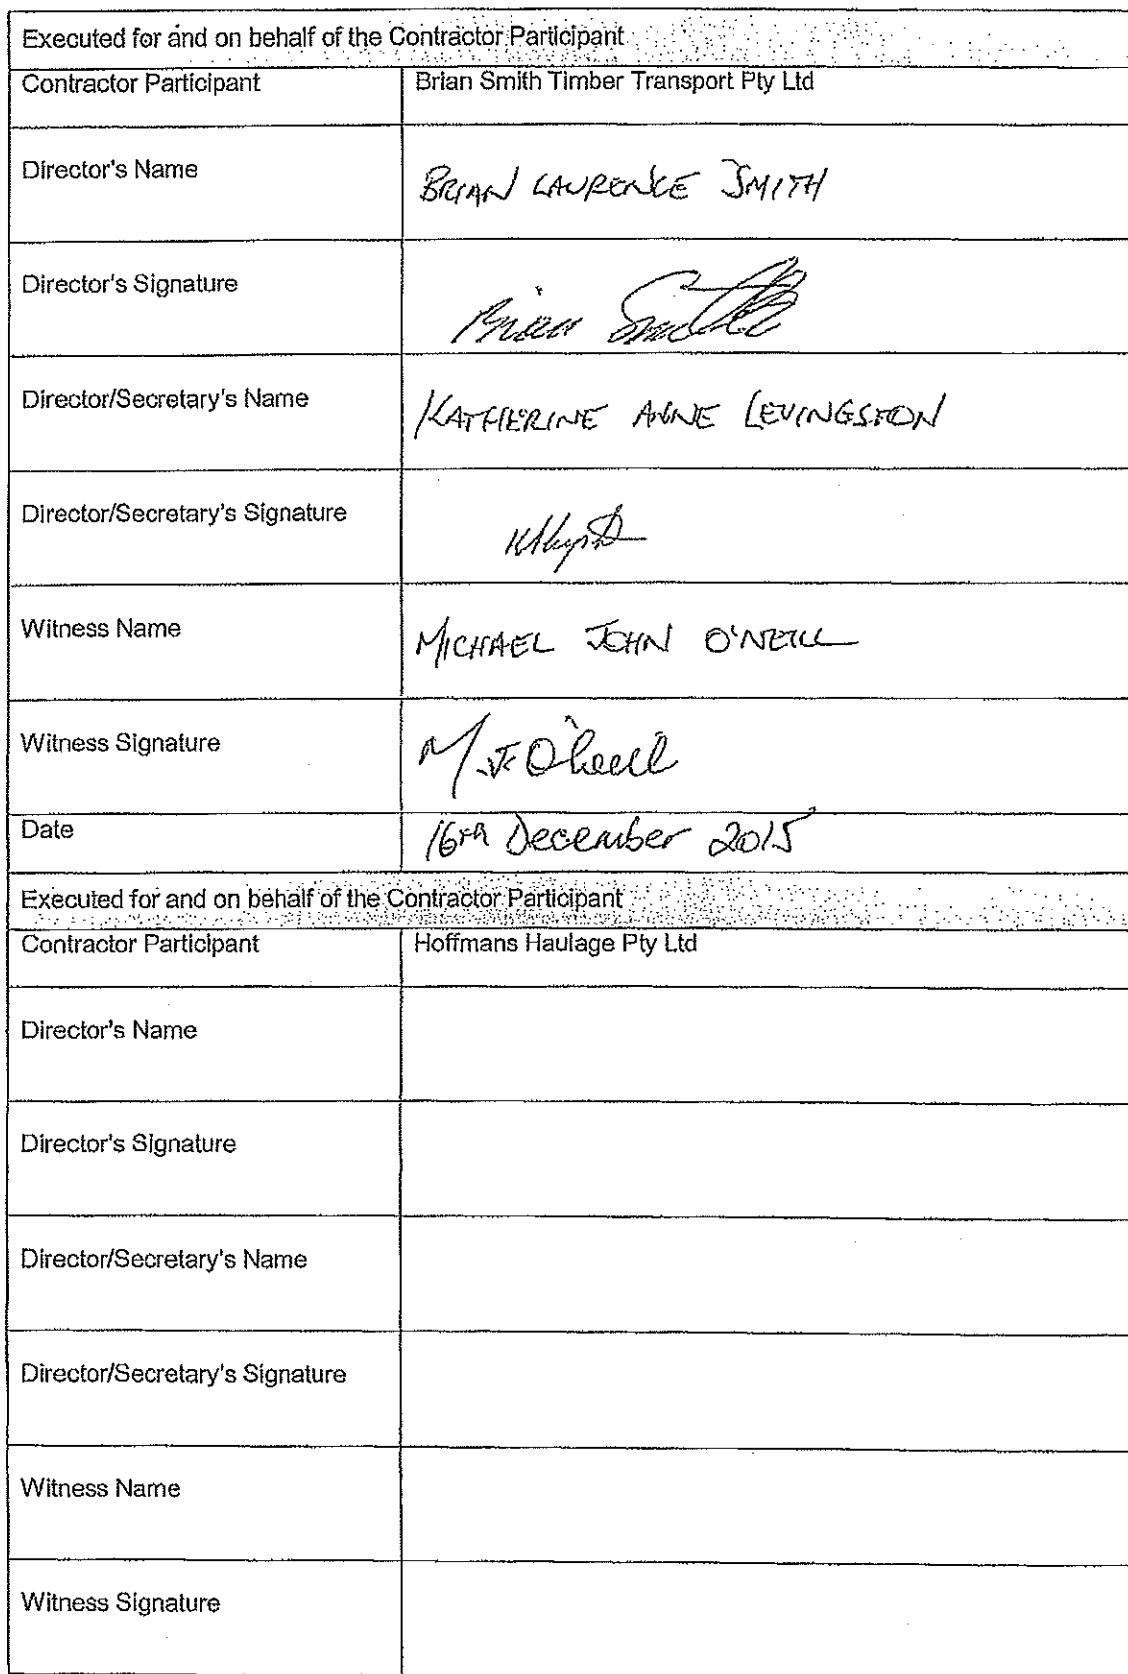 Executed for and on behalf of the Contractor Participant
Contractor Participant Brian Smith Timber Transport Pty Ltd
Director's Name BRIAN LAURENCE SMITH
Director's Signature Brian Smith
Director/Secretary's Name KATHERINE ANNE LEVINGSTON
Director/Secretary's Signature
Witness Name MICHAEL JOHN O'NEILL
Witness Signature M.J. O'Neill
Date 16th December 2015
Executed for and on behalf of the Contractor Participant
Contractor Participant Hoffmans Haulage Pty Ltd
Director's Name
Director's Signature
Director/Secretary's Name
Director/Secretary's Signature
Witness Name
Witness Signature